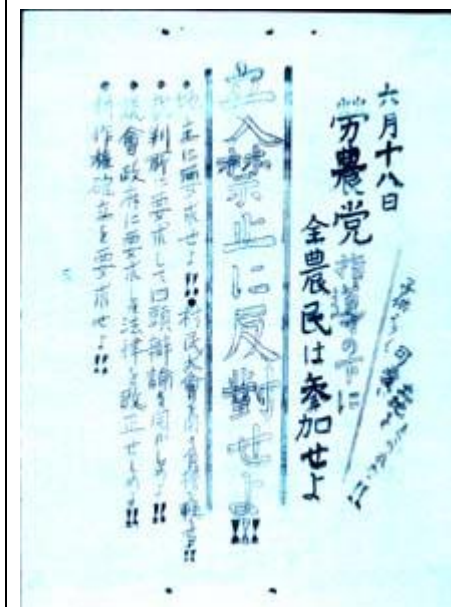 六月十八日
労農党指導の下に
全農民は参加せよ
立入禁止に反對せよ!!!
地主に要求せよ!!●村民大會を開き
●裁判所に要求して口頭辯論を開かしめよ!!
●議會政府に要求し法律を改正せしめよ!!
●耕作権確立を要求せよ!!